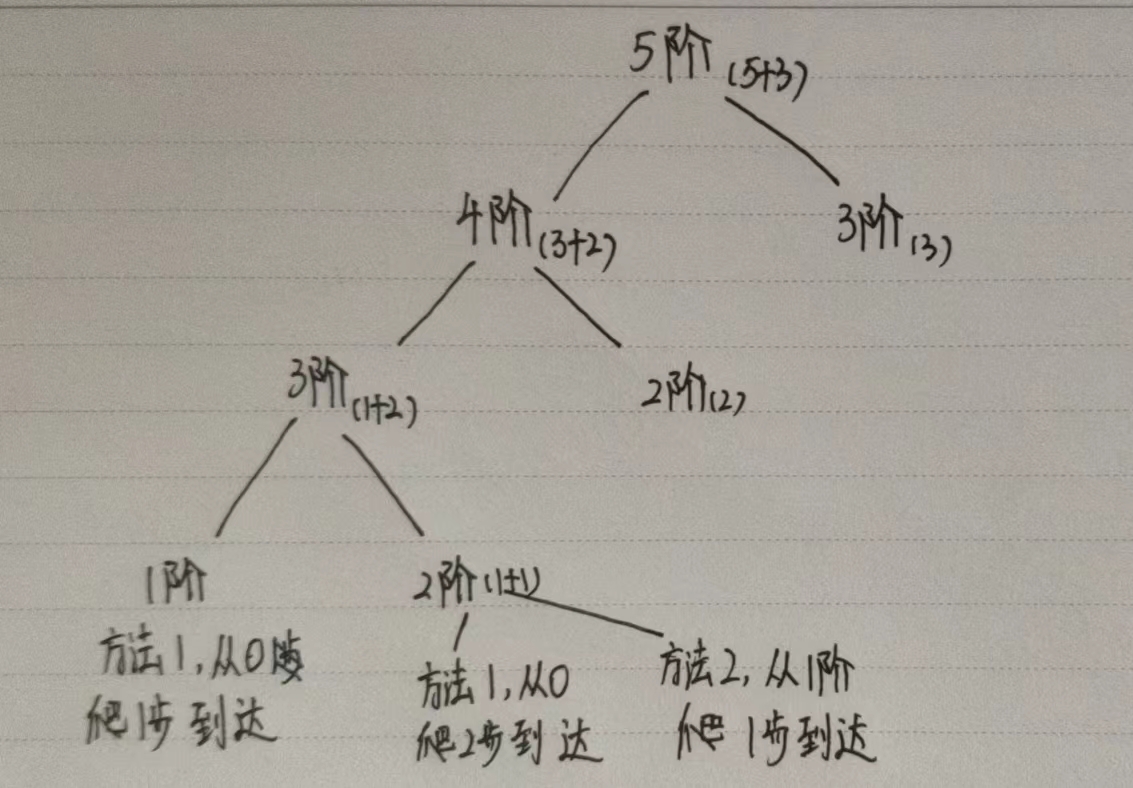 5阶(5+3)
4阶(3+2)
3阶(3)
3阶(1+2)
2阶(2)
1阶
2阶(1+1)
方法1,从0
爬1步到达
方法1,从0
爬2步到达
方法2,从1阶
爬1步到达